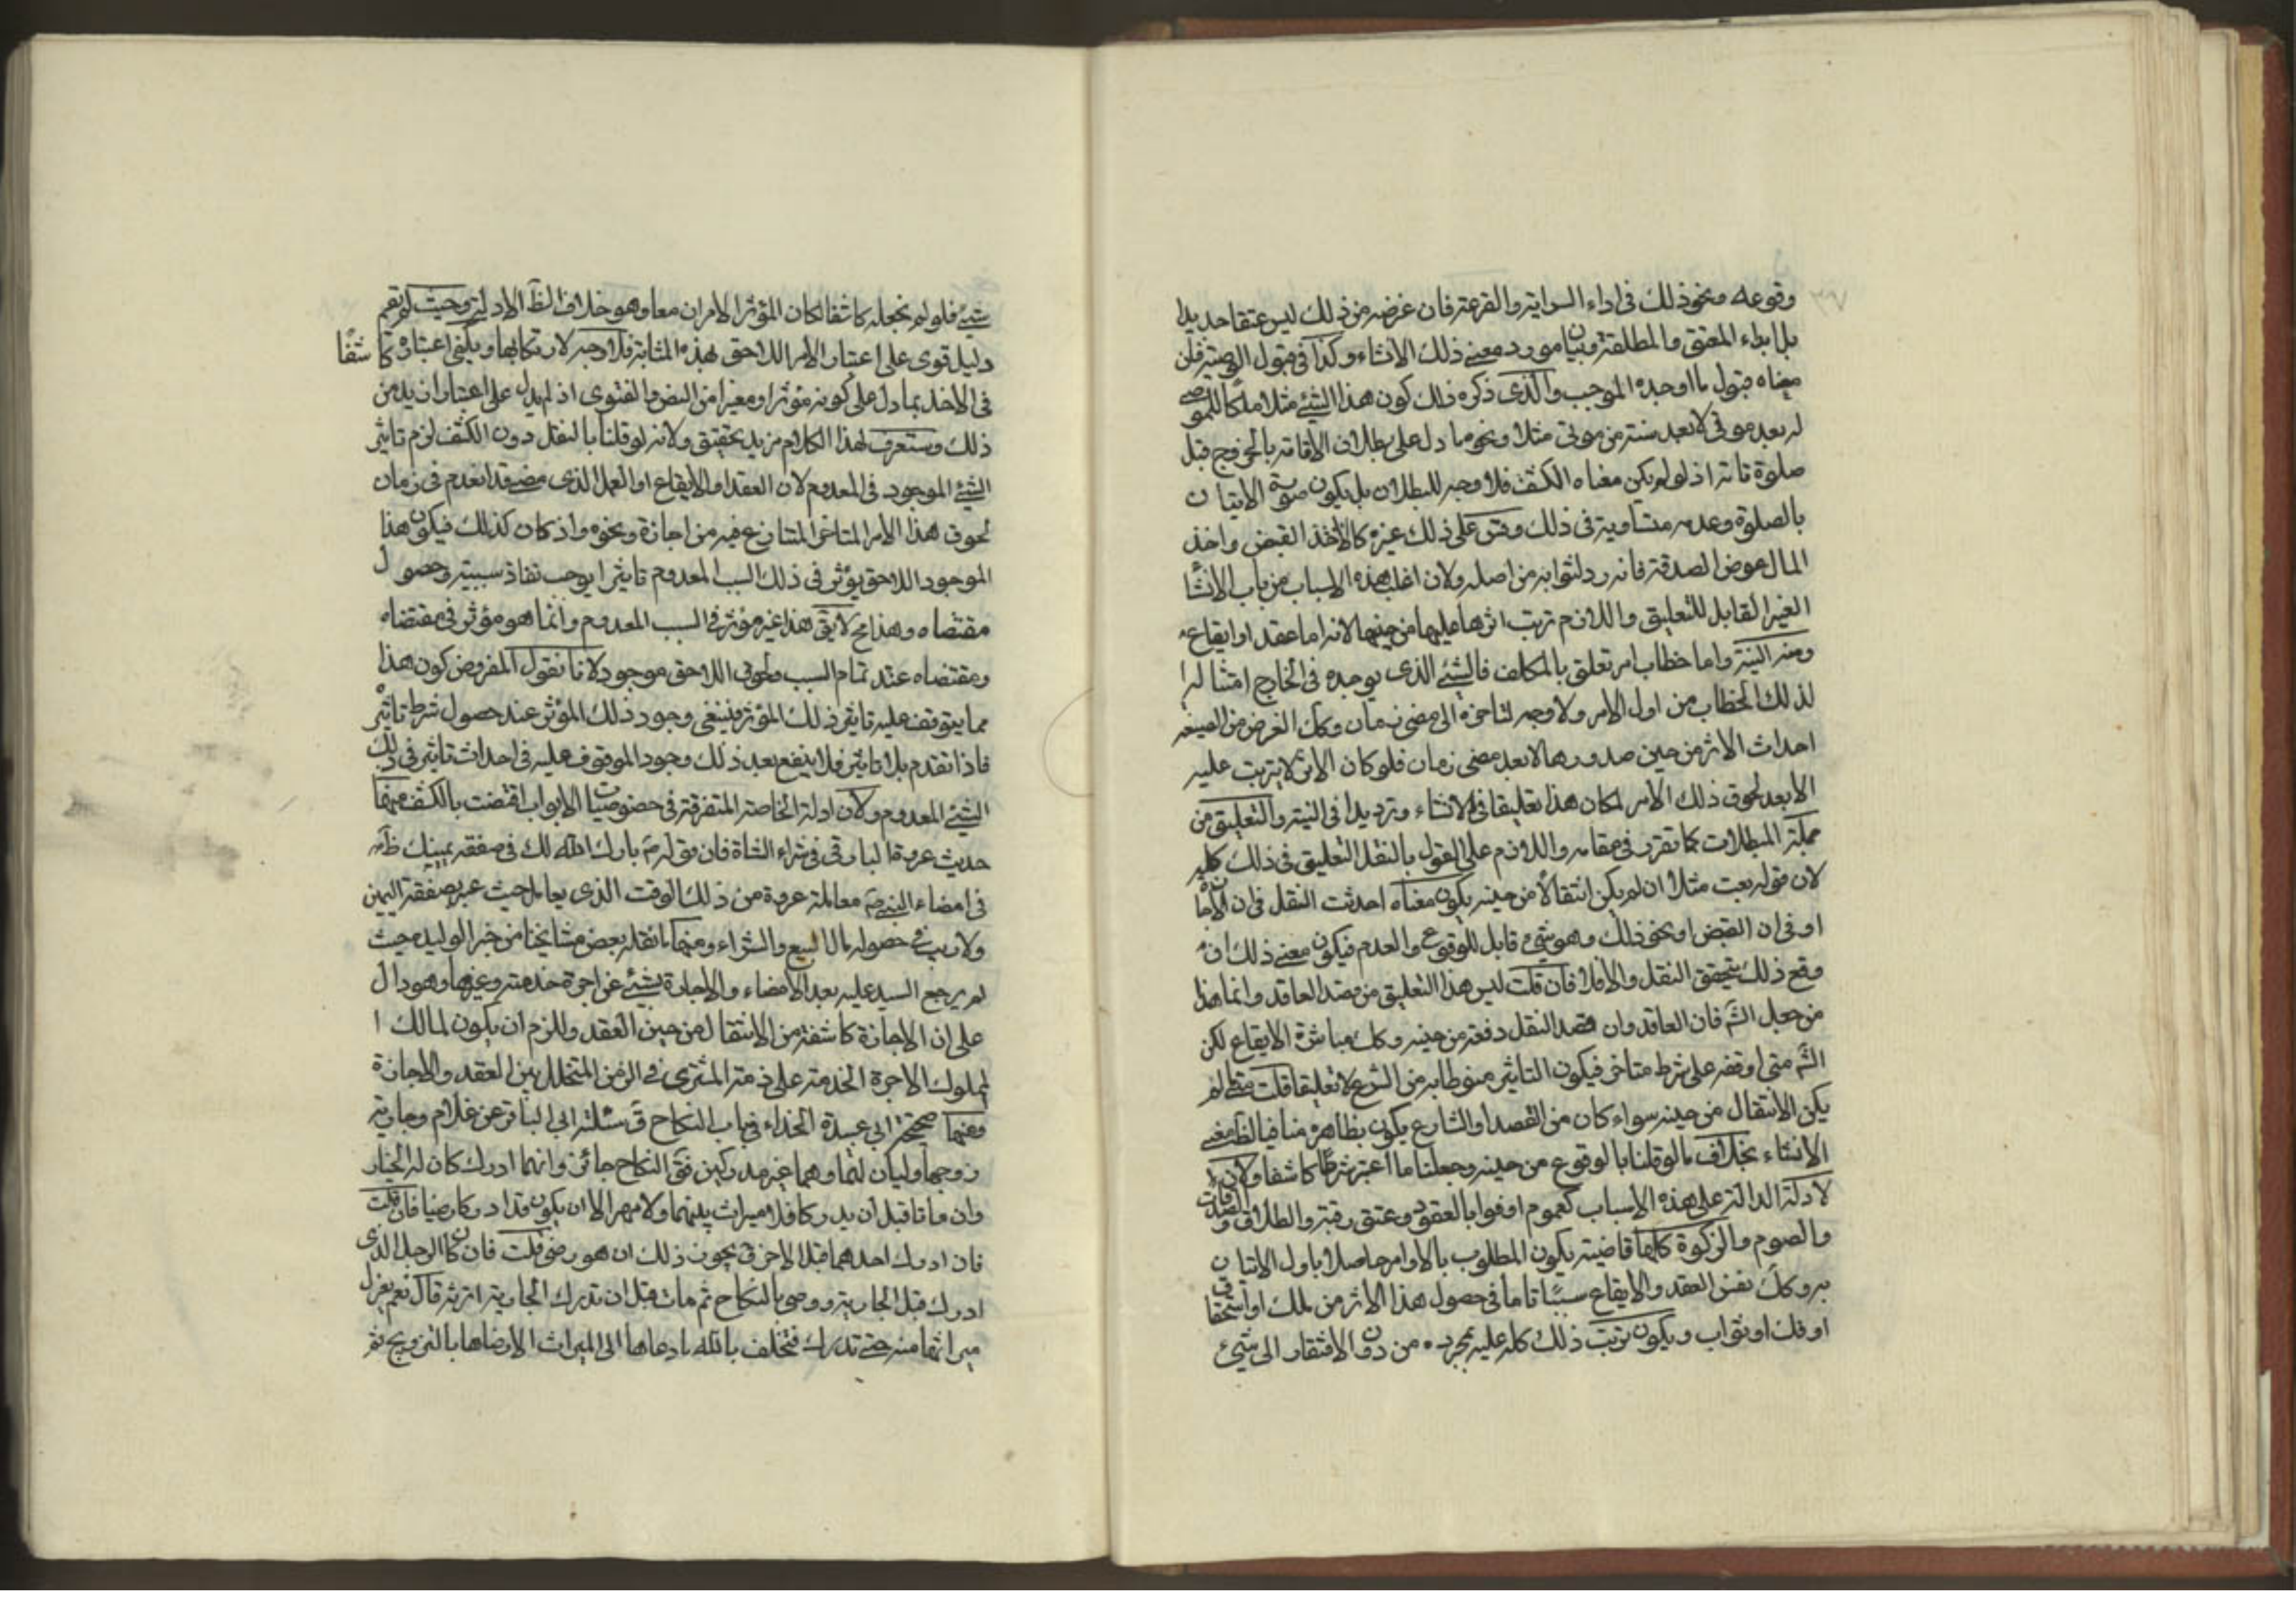 ٣٧
وقوعه ونحو ذلك في اداء السراية والقرعة فان غرضه من ذلك ليس عتقا جديدا
بل ابداء المعتق والمطلقة وبيان مورد معنى ذلك الانشاء وكذا في قبول الوصية فان
معناه قبول ما اوجده الموجب والذى ذكره ذلك كون هذا الشئ مثلا ملكا للموصى
له بعد موتى لا بعد سنة من موتى مثلا ونحو ما دل على بطلان الاقامة بالخروج قبل
صلوة تامة اذ لو لم يكن معناه الكشف فلا وجه للبطلان بل يكون صورة الاتيان
بالصلوة وعدمه متساوية في ذلك وقس على ذلك غيره كالاخذ القبض واخذ
المال عوض الصدقة فانه رد لثوابه من اصله ولان اغلب هذه الاسباب من باب الانشا
الغير القابل للتعليق واللازم ترتب اثرها عليها من حينها لانه اما عقد او ايقاع
ومنه النية واما خطاب امر تعلق بالمكلف فالشئ الذى يوجده في الخارج امتثا له
لذلك الخطاب من اول الامر ولا وجه لتاخره الى مضى زمان وكك الغرض من الصيغه
احداث الاثر من حين صدورها لا بعد مضى زمان فلو كان الاثر لا يترتب عليه
الا بعد لحوق ذلك الامر لكان هذا تعليقا في الانشاء وترديدا في النية والتعليق من
جملة المبطلات كما تقرر في مقامه واللازم على القول بالنقل التعليق في ذلك كله
لان قوله بعت مثلا ان لم يكن انتقالا من حينه يكون معناه احدثت النقل في ان الاجازة
او في ان القبض او نحو ذلك وهو شئ قابل للوقوع والعدم فيكون معنى ذلك ان
وقع ذلك يتحقق النقل والا فلا فان قلت ليس هذا التعليق من قصد العاقد وانما هذا
من جعل الش‍ فان العاقد وان قصد النقل دفعة من حينه وكك مباشرة الايقاع لكن
الش‍ متى اوقفه على شرط متاخر فيكون التاثير منوطا به من الشرع لا تعليقا قلت متى لم
يكن الانتقال من حينه سواء كان من القصد او الشارع يكون بظاهره منافيا لظ معنى
الانشاء بخلاف ما لو قلنا بالوقوع من حينه وجعلنا ما اعتبر شرطا كاشفا ولان
لادلة الدالة على هذه الاسباب كعموم اوفوا بالعقود وعتق رقبة والطلاق والصدقات
والصوم والزكوة كلها قاضية يكون المطلوب بالاوامر حاصلا باول الاتيان
به وكك نفس العقد والايقاع سببا تاما في حصول هذا الاثر من ملك او استحقاق
او فك او ثواب ويكون ترتب ذلك كله عليه بمجرده من دون الافتقار الى شئ
شئ فلو لم نجعله كاشفا لكان المؤثر الامران معا وهو خلاف الظ الادلة وحيث لم تقم
دليل قوى على اعتبار الامر اللاحق بهذه المثابة فلا وجه لارتكابها ويكفى اعتباره كاشفا
في الاخذ بما دل على كونه مؤثرا ومغيرا من النص والفتوى اذ لم يدل على اعتبار ازيد من
ذلك وستعرف لهذا الكلام مزيد تحقيق ولانه لو قلنا بالنقل دون الكشف لزم تاثير
الشئ الموجود في المعدوم لان العقد او الايقاع او العمل الذى مضى قد انعدم في زمان
لحوق هذا الامر المتاخر المتنازع فيه من اجازة ونحوه واذ كان كذلك فيكون هذا
الموجود اللاحق يؤثر في ذلك السبب المعدوم تاثيرا يوجب نفاذ سببيته وحصول
مقتضاه وهذا مح لا يق هذا غير مؤثر في السبب المعدوم وانما هو مؤثر في مقتضاه
ومقتضاه عند تمام السبب ولحوق اللاحق موجود لانا نقول المفروض كون هذا
مما يتوقف عليه تاثير ذلك المؤثر فينبغى وجود ذلك المؤثر عند حصول شرط تاثيره
فاذا تقدم بلا تاثير فلا ينفع بعد ذلك وجود الموقوف عليه في احداث تاثير في ذلك
الشئ المعدوم ولان ادلة الخاصة المتفرقة في خصوصيات الابواب اقتضت بالكشف منها
حديث عروة البارقى في شراء الشاة فان قوله ص بارك الله لك في صفقة يمينك ظاهر
في امضاء النبي ص معاملة عروة من ذلك الوقت الذى يعامل حيث عبر بصفقة اليمين
ولا ريب في حصوله حال البيع والشراء ومنها ما نقله بعض مشايخنا من خبر الوليدة حيث
لم يرجع السيد عليه بعد الامضاء والاجازة بشئ عن اجرة خدمته وغيرها وهو دال
على ان الاجازة كاشفة من الانتقال من حين العقد وللزم ان يكون لمالك ا
لمملوك الاجرة الخدمة على ذمة المشترى في الزمن المتخلل بين العقد والاجازة
ومنها صحيحة ابي عبيدة الحذاء في باب النكاح ق سئلت ابي الباقر عن غلام وجارية
زوجهما وليان لهما وهما غير مدركين فق النكاح جائز وانهما ادرك كان له الخيار
وان ماتا قبل ان يدركا فلا ميراث بينهما ولا مهر الا ان يكون قد ادركا ورضيا فان قلت
فان ادرك احدهما قبل الاخر ق يجوز ذلك ان هو رضى قلت فان كان الرجل الذى
ادرك قبل الجارية ورضى بالنكاح ثم مات قبل ان تدرك الجارية اترثه قال نعم يعزل
ميراثها منه حتى تدرك فتحلف بالله ما دعاها الى الميراث الا رضاها بالتزويج ثم